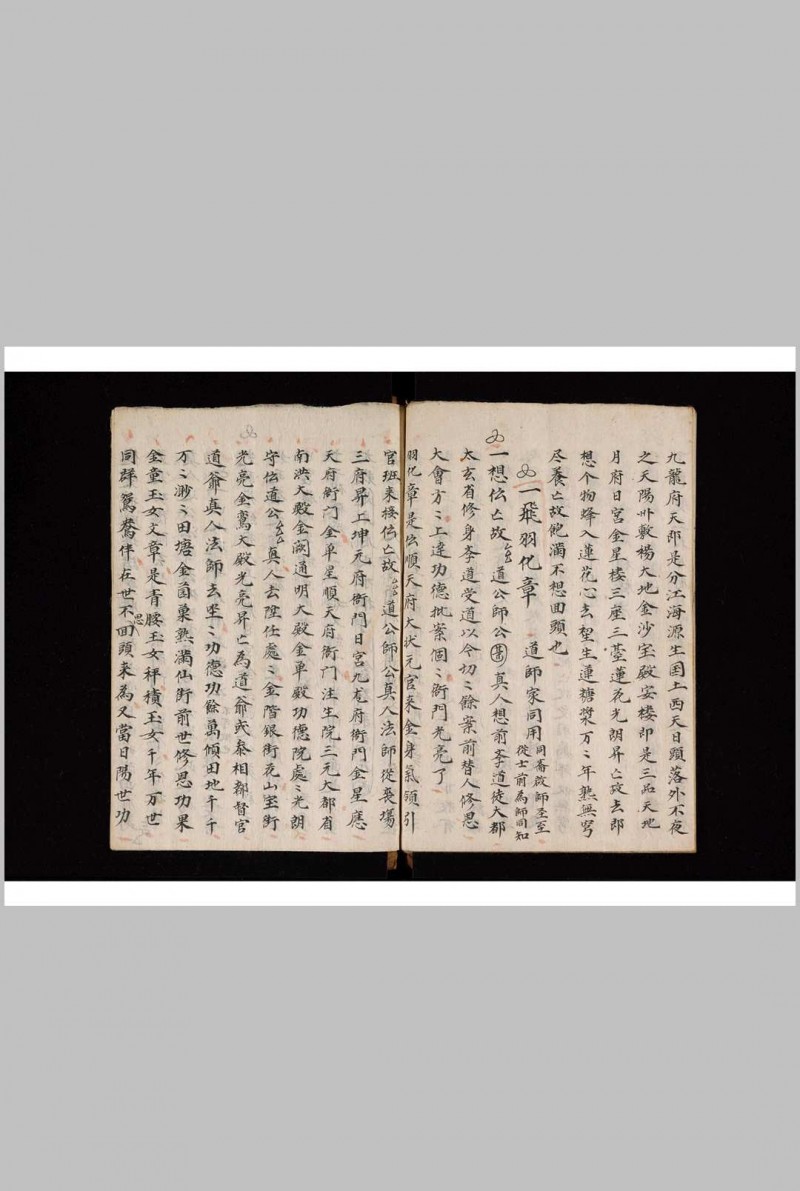 九龍府天郎是分江海源生国土西天日頭落外不夜
之天陽卅敷褟大地金沙宝殿安楼即是三品天地
月府日宮金星楼三座三臺蓮花光朗昇亡故去郎
想个物蜂入蓮花心去 生蓮糖漿万〻年熟無穹
尽養亡故飽満不想回頭也
一飛羽化章 道師家同用 同斋啟師至至
從士前為師同知
一想伝亡故 道公師公 真人想前孝道徒大都
太玄省修身李道受道以今切〻餘案前替人修思
大會方〻上達功德批案個〻衙門光亮了
羽化章是伝順天府大状元官来金身氣領引
官班来接伝亡故 道公師公真人法師從喪場
三府昇上坤元府衙門日宮九龙府衙門金星應
天府衙門金单星順天府衙門注生院三元大都省
南洪大殿金闕通明大殿金单殿功德院處〻光朗
守伝道公 真人去陞仕處〻金階銀街花山宝街
光亮金鸞大殿光亮昇亡為道爺或泰相都督官
道爺真人法師去坐〻功德功餘萬傾田地千千
万〻渺〻田塘金茵菓熟満仙街前世修思功果
金童玉女文章是青腰玉女秤積玉女千年万世
同群鴛鴦伴在世不思回頭来為又當日陽世功